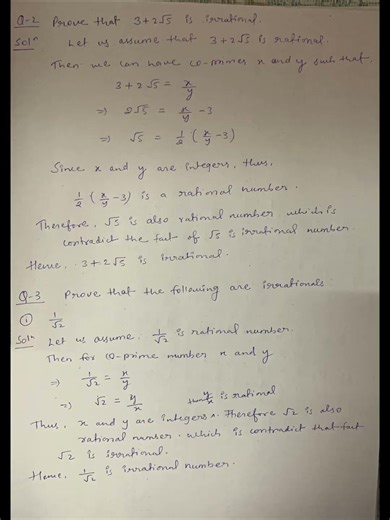 Q-2 Prove that 3+2√5 is irrational.
Solⁿ Let us assume that 3+2√5 is rational.
Then we can have co-primes x and y such that,
3+2√5 = x/y
⇒ 2√5 = x/y -3
⇒ √5 = 1/2 (x/y -3)
Since x and y are integers, thus,
1/2 (x/y -3) is a rational number.
Therefore, √5 is also rational number which is
contradict the fact of √5 is irrational number
Hence, 3+2√5 is irrational.
Q-3 Prove that the following are irrationals
(i) 1/√2
Solⁿ Let us assume 1/√2 is rational number.
Then for Co-prime number x and y
⇒ 1/√2 = x/y
⇒ √2 = y/x y/x is rational
Thus, x and y are integers. Therefore √2 is also
rational number. which is contradict that fact
√2 is irrational.
Hence, 1/√2 is irrational number.